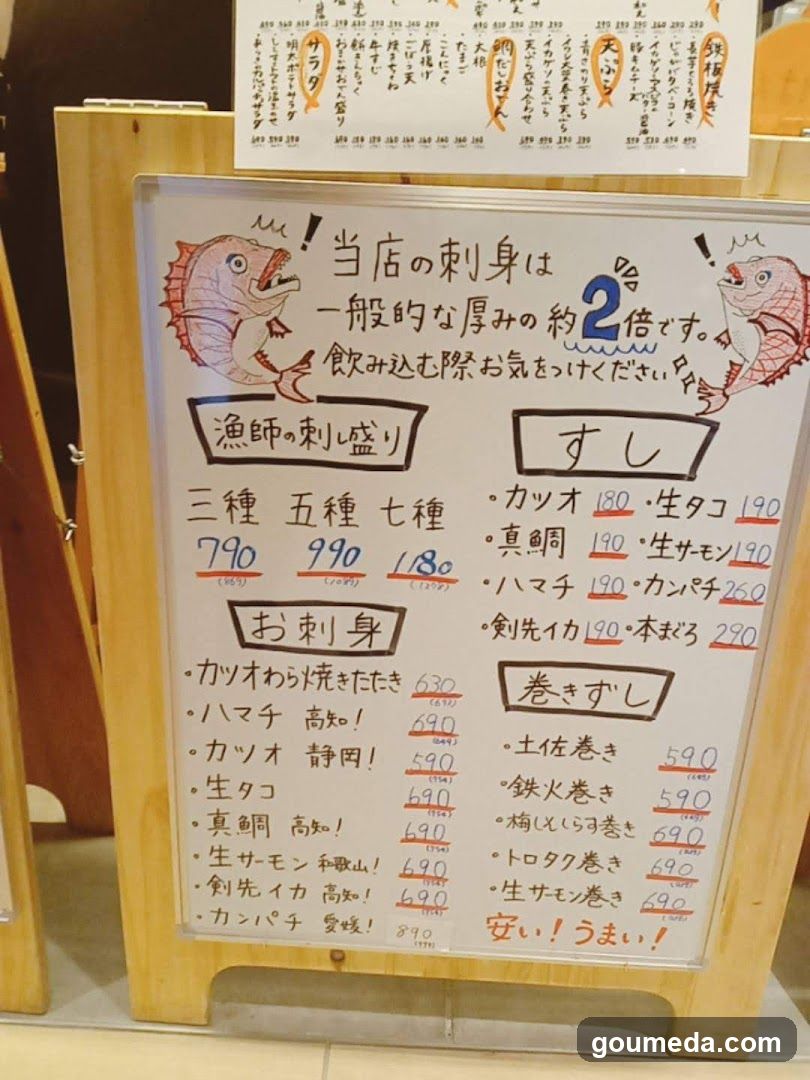 鉄板焼き
長芋とろろ焼き
じゃがバタベーコーン
豚キムチーズ
天ぷら
青さのり天ぷら
イカゲソ天ぷら
天ぷら盛り合わせ
鯛だしおでん
大根
たまご
こんにゃく
厚揚げ
ごぼう天
牛すじ
餅きんちゃく
おまかせおでん盛り
サラダ
明太ポテトサラダ
当店の刺身は
一般的な厚みの約2倍です。
飲み込む際お気をつけください
漁師の刺し盛り
三種 五種 七種
790 990 1180
(869) (1089) (1298)
お刺身
・カツオわら焼きたたき 630
(693)
・ハマチ 高知! 690
・カツオ 静岡! 590
・生タコ 690
・真鯛 高知! 690
・生サーモン 和歌山! 690
・剣先イカ 高知! 690
・カンパチ 愛媛! 890
すし
・カツオ 180 ・生タコ 190
・真鯛 190 ・生サーモン 190
・ハマチ 190 ・カンパチ 260
・剣先イカ 190 ・本まぐろ 290
巻きずし
・土佐巻き 590
・鉄火巻き 590
・梅しそしらす巻き 690
・トロタク巻き 690
・生サーモン巻き 690
安い!うまい!
goumeda.com